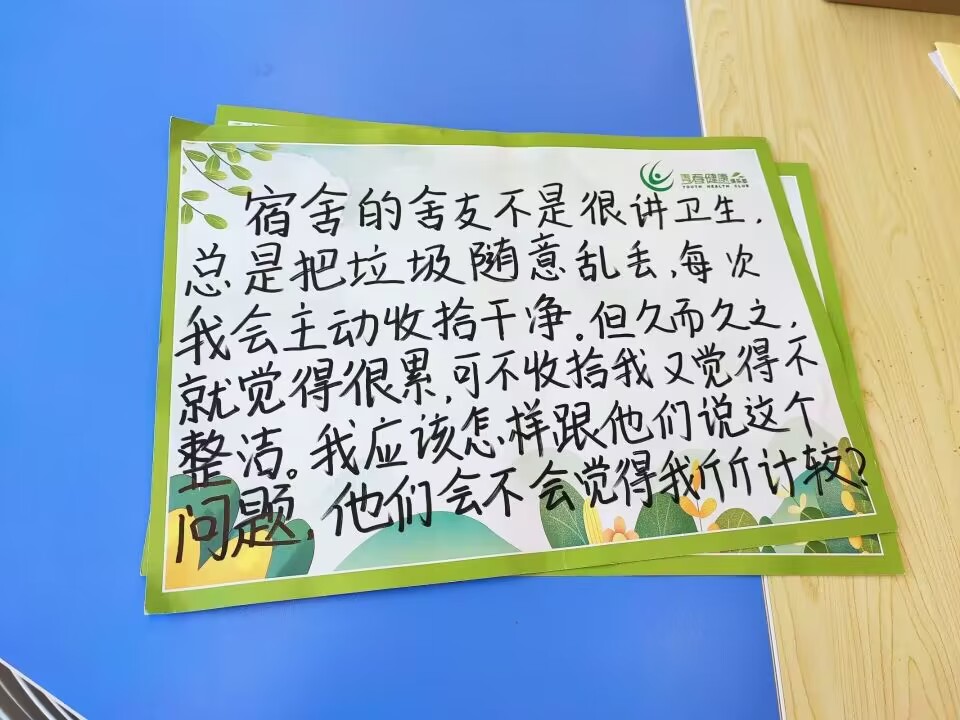 青春健康俱乐部
YOUTH HEALTH CLUB
宿舍的舍友不是很讲卫生，
总是把垃圾随意乱丢，每次
我会主动收拾干净。但久而久之，
就觉得很累，可不收拾我又觉得不
整洁。我应该怎样跟他们说这个
问题，他们会不会觉得我斤斤计较？